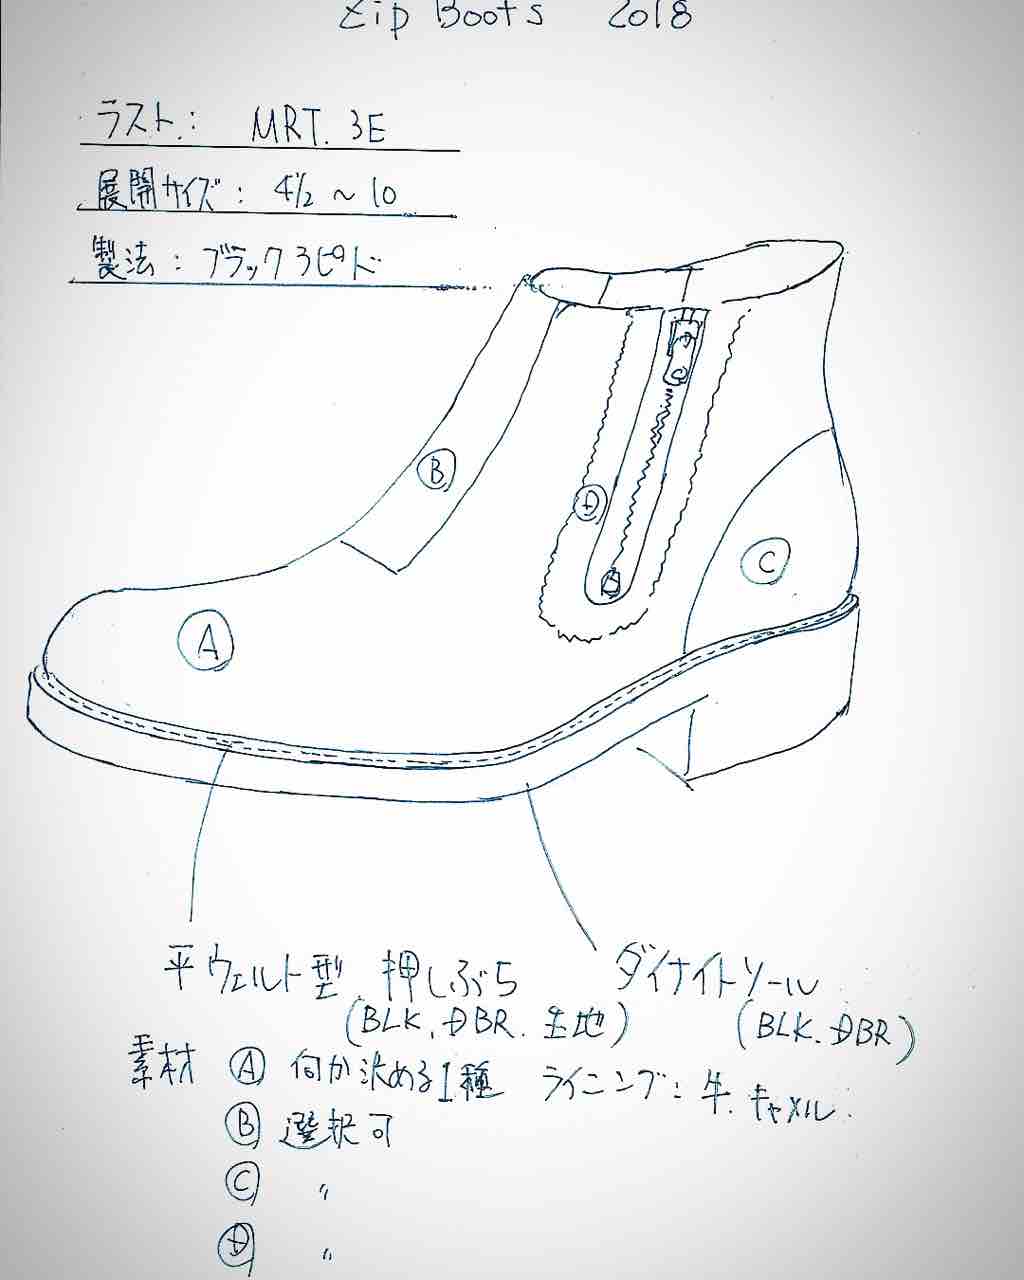 Zip Boots 2018
ラスト: MRT. 3E
展開サイズ: 4½ ~ 10
製法: ブラックラピド
B
D
C
A
平ウェルト型 押しぶち
(BLK. DBR. 生地)
ダイナイトソール
(BLK. DBR)
素材 Ⓐ 何か決める1種 ライニング: 牛. キャメル.
Ⓑ 選択可
Ⓒ 〃
Ⓓ 〃